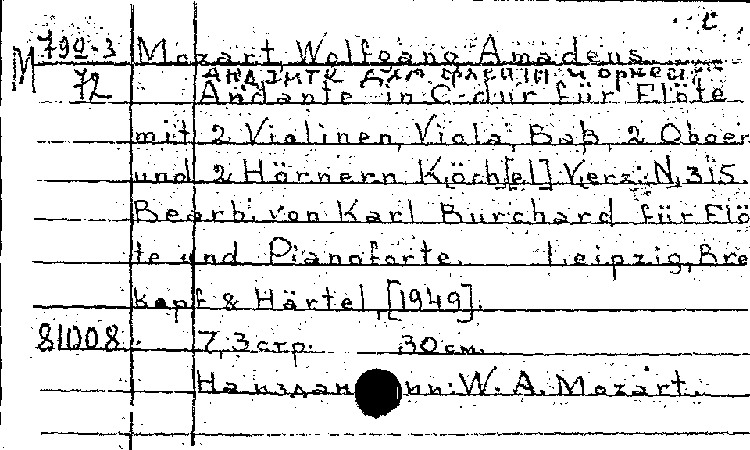 с
М 790-3 Mozart, Wolfgang Amadeus
72 Andante in C-dur für Flöte
mit 2 Violinen, Viola, Baß, 2 Oboen
und 2 Hörnern Köch[el] Verz: N, 315.
Bearb. von Karl Burchard für Flö
te und Pianoforte. Leipzig, Bre
kopf & Härtel, [1949].
81008. 7,3 стр. 30 см.
На издан нн: W. A. Mozart.